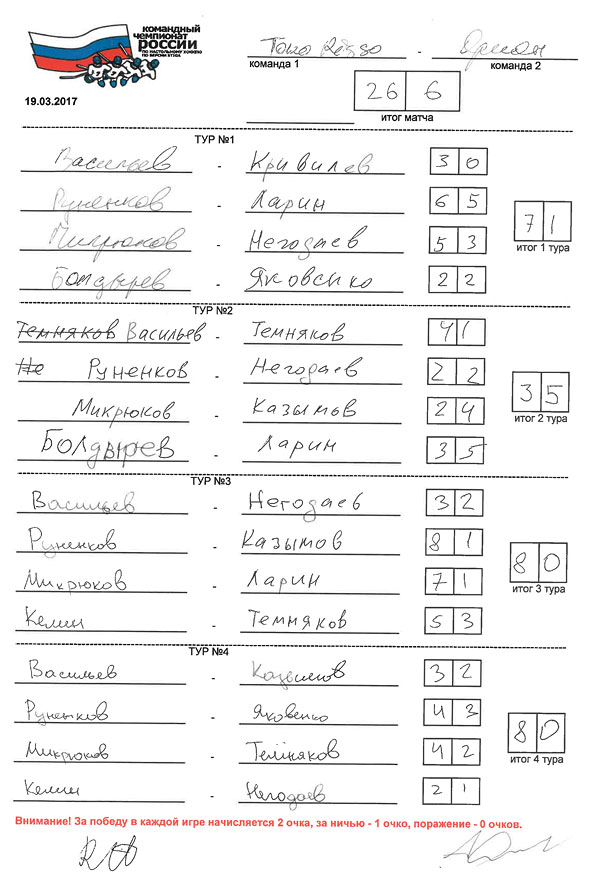 КОМАНДНЫЙ
ЧЕМПИОНАТ
РОССИИ
ПО НАСТОЛЬНОМУ ХОККЕЮ
ПО ВЕРСИИ STIGA
19.03.2017
команда 1 - команда 2
26 6
итог матча
ТУР №1
Васильев - Кривилев 3 0
Руненков - Ларин 6 5
Микрюков - Негодаев 5 3
Болдырев - Яковенко 2 2
7 1
итог 1 тура
ТУР №2
Темняков Васильев - Темняков 4 1
Не Руненков - Негодаев 2 2
Микрюков - Казымов 2 4
Болдырев - Ларин 3 5
3 5
итог 2 тура
ТУР №3
Васильев - Негодаев 3 2
Руненков - Казымов 8 1
Микрюков - Ларин 7 1
Келин - Темняков 5 3
8 0
итог 3 тура
ТУР №4
Васильев - Казымов 3 2
Руненков - Яковенко 4 3
Микрюков - Темняков 4 2
Келин - Негодаев 2 1
8 0
итог 4 тура
Внимание! За победу в каждой игре начисляется 2 очка, за ничью - 1 очко, поражение - 0 очков.